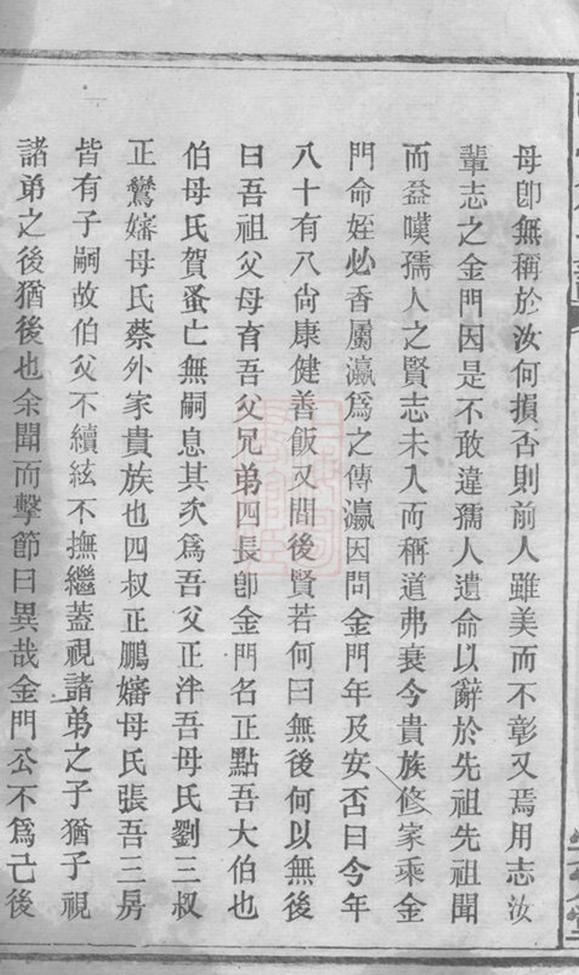 母卽無稱於汝何損否則前人雖美而不彰又焉用志汝
輩志之金門因是不敢違孺人遺命以辭於先祖先祖聞
而益嘆孺人之賢志未入而稱道弗衰今貴族修家乘金
門命姪必香屬瀛爲之傳瀛因問金門年及安否曰今年
八十有八尙康健善飯又問後賢若何曰無後何以無後
曰吾祖父母育吾父兄弟四長卽金門名正點吾大伯也
伯母氏賀蚤亡無嗣息其次爲吾父正泮吾母氏劉三叔
正鸞嬸母氏蔡外家貴族也四叔正鵬嬸母氏張吾三房
皆有子嗣故伯父不續絃不撫繼蓋視諸弟之子猶子視
諸弟之後猶後也余聞而擊節曰異哉金門公不爲己後